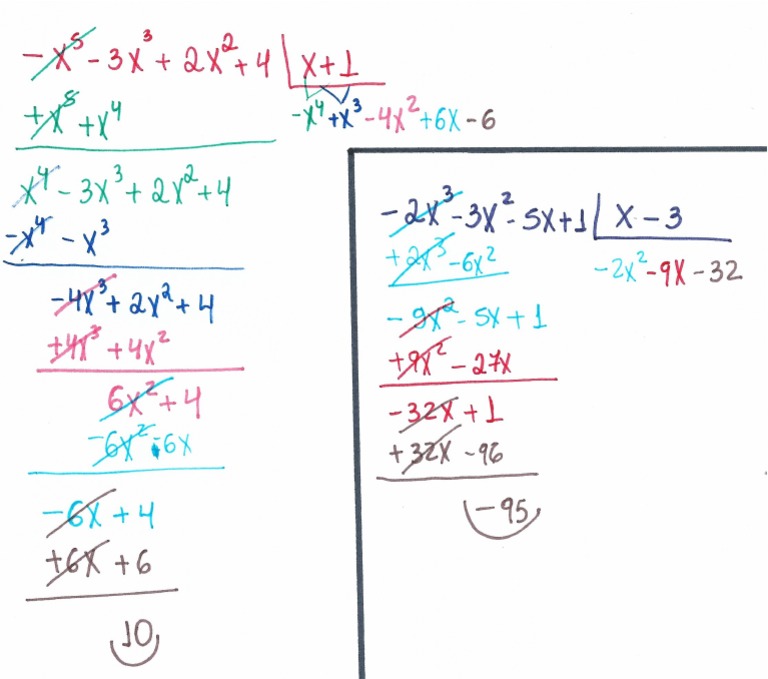 -x⁵ - 3x³ + 2x² + 4 | x + 1
+x⁵ + x⁴
-x⁴ + x³ - 4x² + 6x - 6
x⁴ - 3x³ + 2x² + 4
-x⁴ - x³
-4x³ + 2x² + 4
+4x³ + 4x²
6x² + 4
-6x² - 6x
-6x + 4
+6x + 6
10
-2x³ - 3x² - 5x + 1 | x - 3
+2x³ - 6x²
-2x² - 9x - 32
-9x² - 5x + 1
+9x² - 27x
-32x + 1
+32x - 96
-95